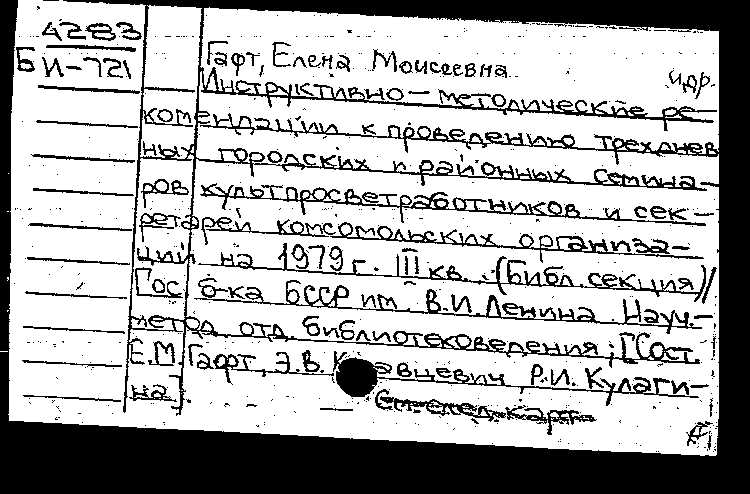 4283
БИ-721
Гафт, Елена Моисеевна
и др.
Инструктивно-методические ре-
комендации к проведению трехднев
ных городских и районных семина-
ров культпросветработников и сек-
ретарей комсомольских организа-
ций на 1979 г. III кв. (Библ. секция)/
Гос б-ка БССР им. В.И. Ленина. Науч.-
метод отд. библиотековедения; [Сост.
Е.М. Гафт, Э.В. К авцевич, Р.И. Кулаги-
на].
См. след. карт.